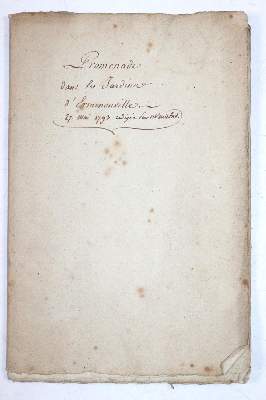 Promenade
dans les Jardins
d'Ermenonville
27 mai 1793 rédigée